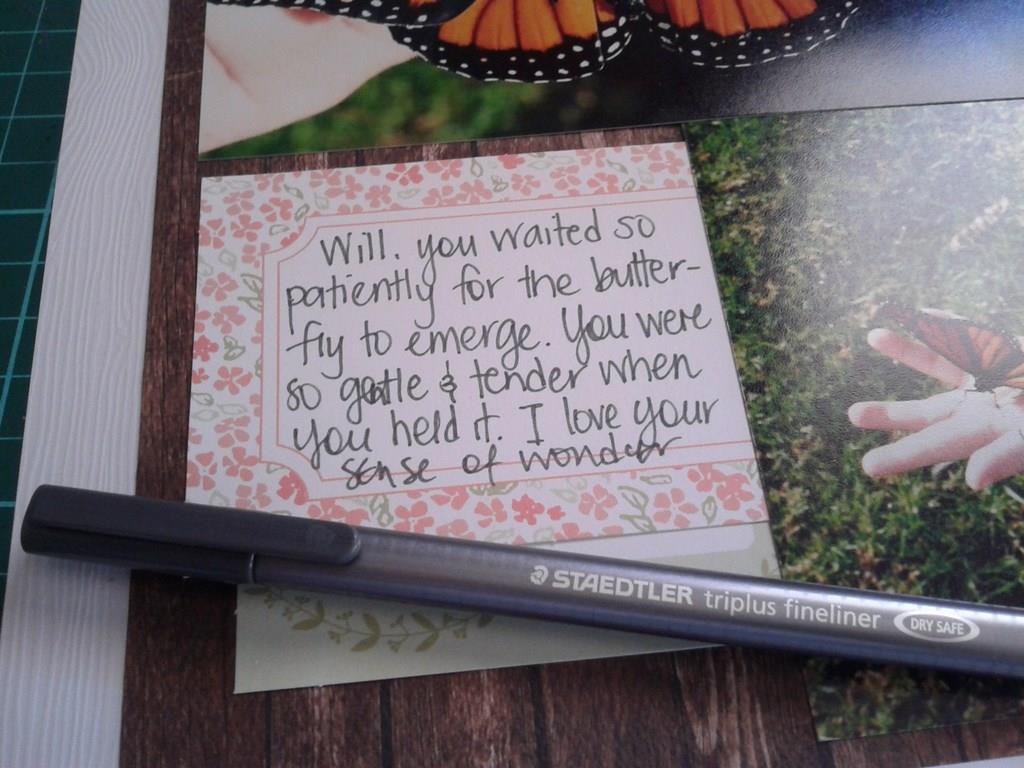 Will. you waited so
patiently for the butter-
fly to emerge. You were
so gentle & tender when
you held it. I love your
sense of wonder
STAEDTLER triplus fineliner DRY SAFE